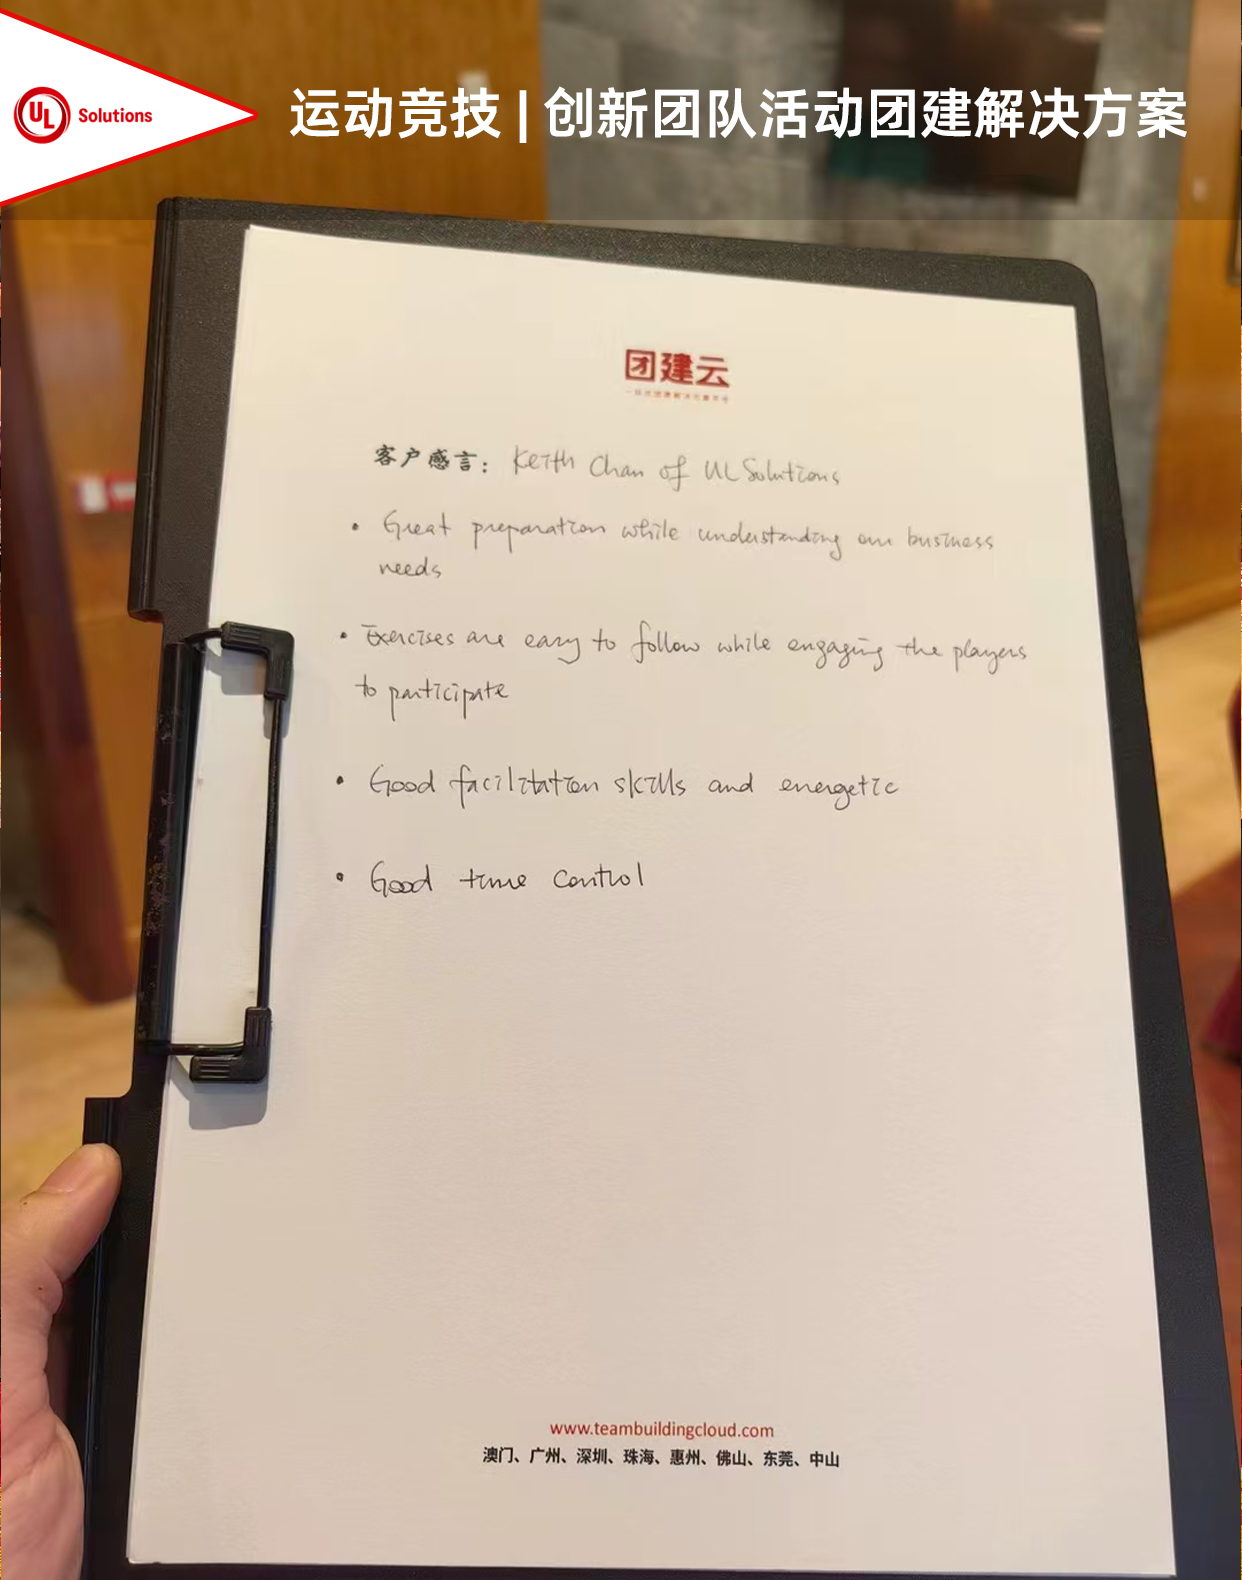 UL Solutions
运动竞技 | 创新团队活动团建解决方案
团建云
客户感言: Keith Chan of UL Solutions
• Great preparation while understanding our business
needs
• Exercises are easy to follow while engaging the players
to participate
• Good facilitation skills and energetic
• Good time control
www.teambuildingcloud.com
澳门、广州、深圳、珠海、惠州、佛山、东莞、中山